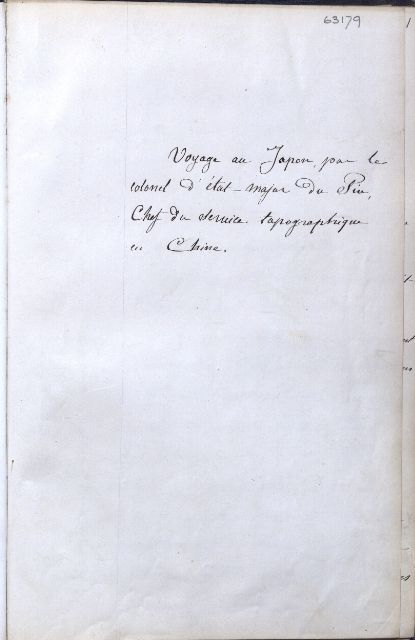 63179
Voyage au Japon, par le
colonel d'état-major du Pin,
Chef du service topographique
en Chine.